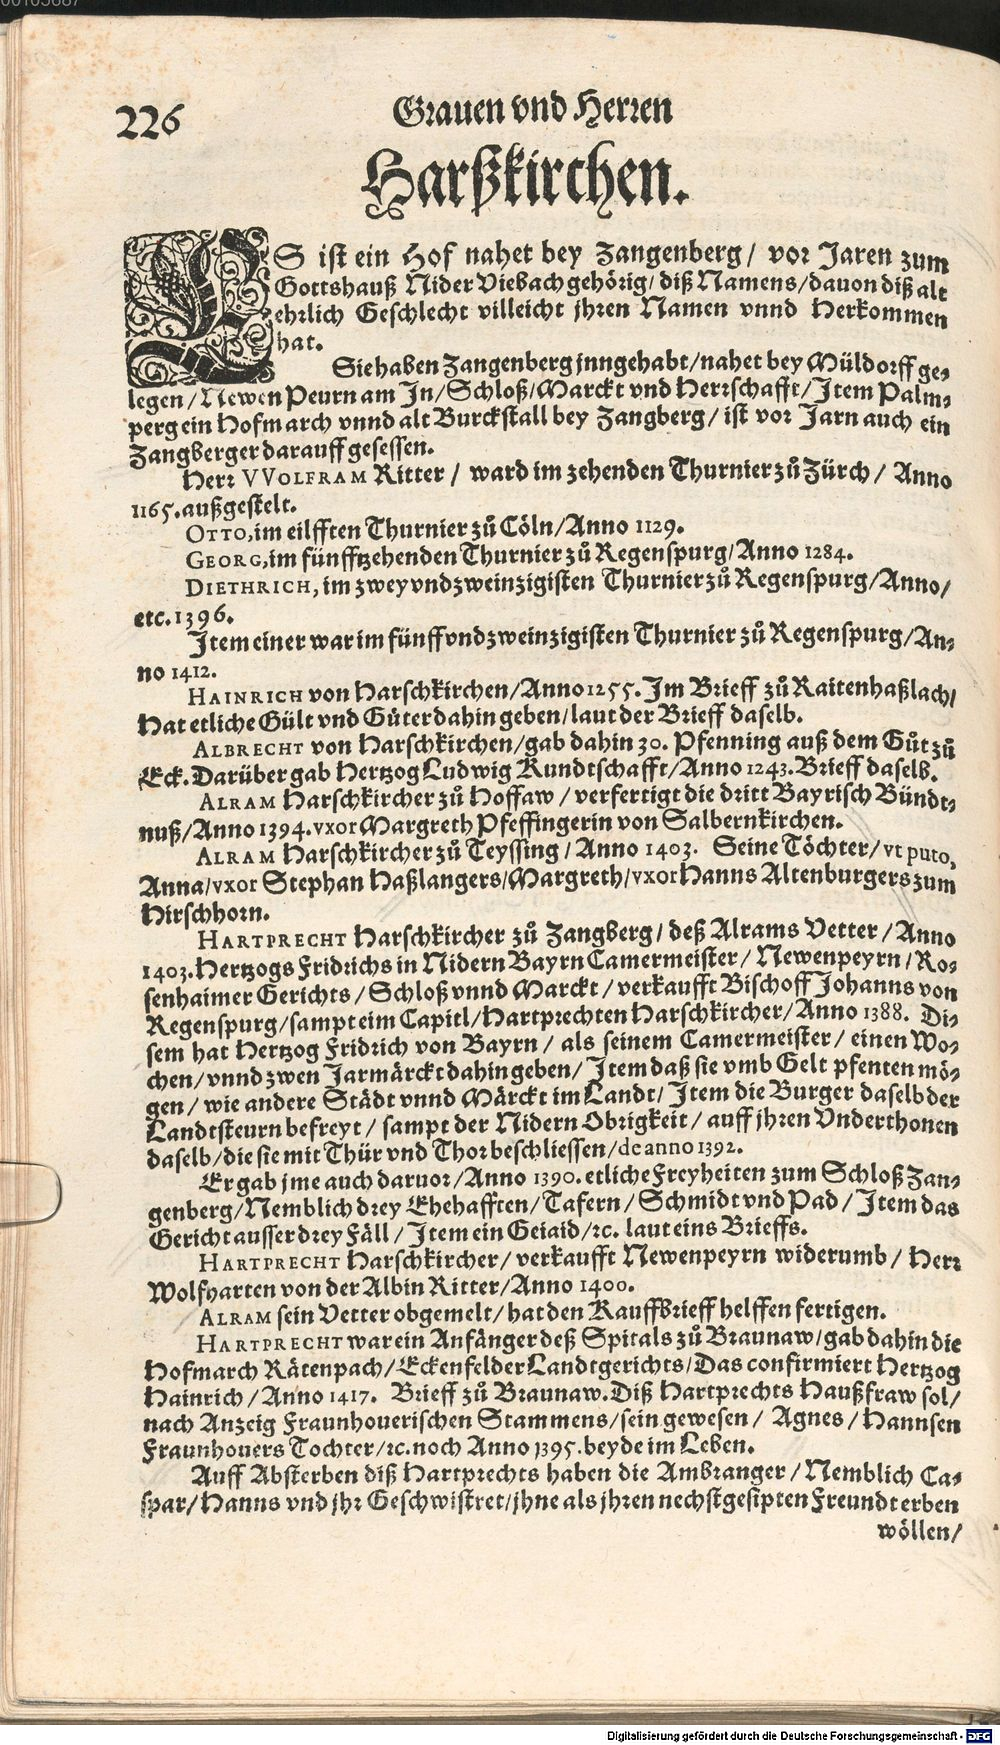 226
Grauen vnd Herren
Harßkirchen.
ES ist ein Hof nahet bey Zangenberg/ vor Jaren zum
Gottshauß Nider Viebach gehörig/ diß Namens/ dauon diß alt
ehrlich Geschlecht villeicht jhren Namen vnnd Herkommen
hat.
Sie haben Zangenberg jnngehabt/ nahet bey Müldorff ge-
legen/ Newen Peurn am In/ Schloß/ Marckt vnd Herrschafft/ Item Palm-
perg ein Hofmarch vnnd alt Burckstall bey Zangberg/ ist vor Jarn auch ein
Zangberger darauff gesessen.
Herr VVOLFRAM Ritter/ ward im zehenden Thurnier zů Zürch/ Anno
1165. außgestelt.
OTTO, im eilfften Thurnier zů Cöln/ Anno 1129.
GEORG, im fünfftzehenden Thurnier zů Regenspurg/ Anno 1284.
DIETHRICH, im zwey vnd zweinzigisten Thurnier zů Regenspurg/ Anno/
etc. 1396.
Item einer war im fünff vnd zweinzigisten Thurnier zů Regenspurg/ An-
no 1412.
HAINRICH von Harschkirchen/ Anno 1255. Im Brieff zů Raitenhaßlach/
Hat etliche Gült vnd Güter dahin geben/ laut der Brieff daselb.
ALBRECHT von Harschkirchen/ gab dahin 30. Pfenning auß dem Gůt zů
Eck. Darüber gab Hertzog Ludwig Kundtschafft/ Anno 1243. Brieff daselb.
ALRAM Harschkircher zů Hoffaw/ verfertigt die dritt Bayrisch Bündt-
nuß/ Anno 1394. vxor Margreth Pfeffingerin von Salbernkirchen.
ALRAM Harschkircher zů Teyssing/ Anno 1403. Seine Töchter/ vt puto,
Anna/ vxor Stephan Haßlangers/ Margreth/ vxor Hanns Altenburgers zum
Hirschhorn.
HARTPRECHT Harschkircher zů Zangberg/ deß Alrams Vetter/ Anno
1403. Hertzogs Fridrichs in Nidern Bayrn Camermeister/ Newenpeyrn/ Ro-
senhaimer Gerichts/ Schloß vnnd Marckt/ verkaufft Bischoff Johanns von
Regenspurg/ sampt eim Capitl/ Hartprechten Harschkircher/ Anno 1388. Di-
sem hat Hertzog Fridrich von Bayrn/ als seinem Camermeister/ einen Wo-
chen/ vnnd zwen Jarmärckt dahin geben/ Item daß sie vmb Gelt pfenten mö-
gen/ wie andere Städt vnnd Märckt im Landt/ Item die Burger daselb der
Landtsteurn befreyt/ sampt der Nidern Obrigkeit/ auff jhren Vnderthonen
daselb/ die sie mit Thür vnd Thor beschliessen/ de anno 1392.
Er gab jme auch daruor/ Anno 1390. etliche Freyheiten zum Schloß Zan-
genberg/ Nemblich drey Ehehafften/ Tafern/ Schmidt vnd Pad/ Item das
Gericht ausser drey Fäll/ Item ein Geiaid/ ꝛc. laut eins Brieffs.
HARTPRECHT Harschkircher/ verkaufft Newenpeyrn widerumb/ Herr
Wolfharten von der Albin Ritter/ Anno 1400.
ALRAM sein Vetter obgemelt/ hat den Kauffbrieff helffen fertigen.
HARTPRECHT war ein Anfänger deß Spitals zů Braunaw/ gab dahin die
Hofmarch Rätenpach/ Eckenfelder Landtgerichts/ Das confirmiert Hertzog
Hainrich/ Anno 1417. Brieff zů Braunaw. Diß Hartprechts Haußfraw sol/
nach Anzeig Fraunhouerischen Stammens/ sein gewesen/ Agnes/ Hannsen
Fraunhouers Tochter/ ꝛc. noch Anno 1395. beyde im Leben.
Auff Absterben diß Hartprechts haben die Ambranger/ Nemblich Ca-
spar/ Hanns vnd jhr Geschwistret/ jhne als jhren nechstgesipten Freundt erben
wöllen/
Digitalisierung gefördert durch die Deutsche Forschungsgemeinschaft - DFG